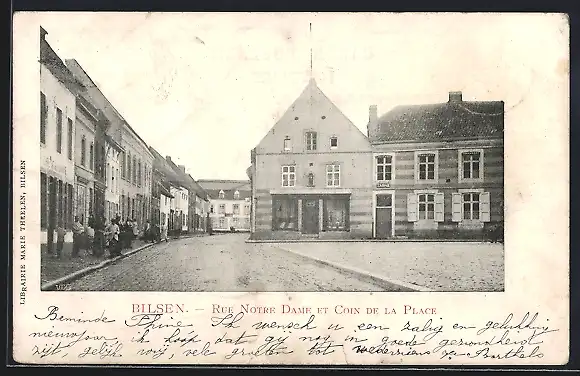 LIBRAIRIE MARIE THEELEN, BILSEN
BILSEN. - RUE NOTRE DAME ET COIN DE LA PLACE
Beminde Phine Ik wensch u een zalig en gelukkig
nieuwjaar, ik hoop dat gij nog in goede gezondheid
zijt, gelijk wij, vele groeten tot wederziens